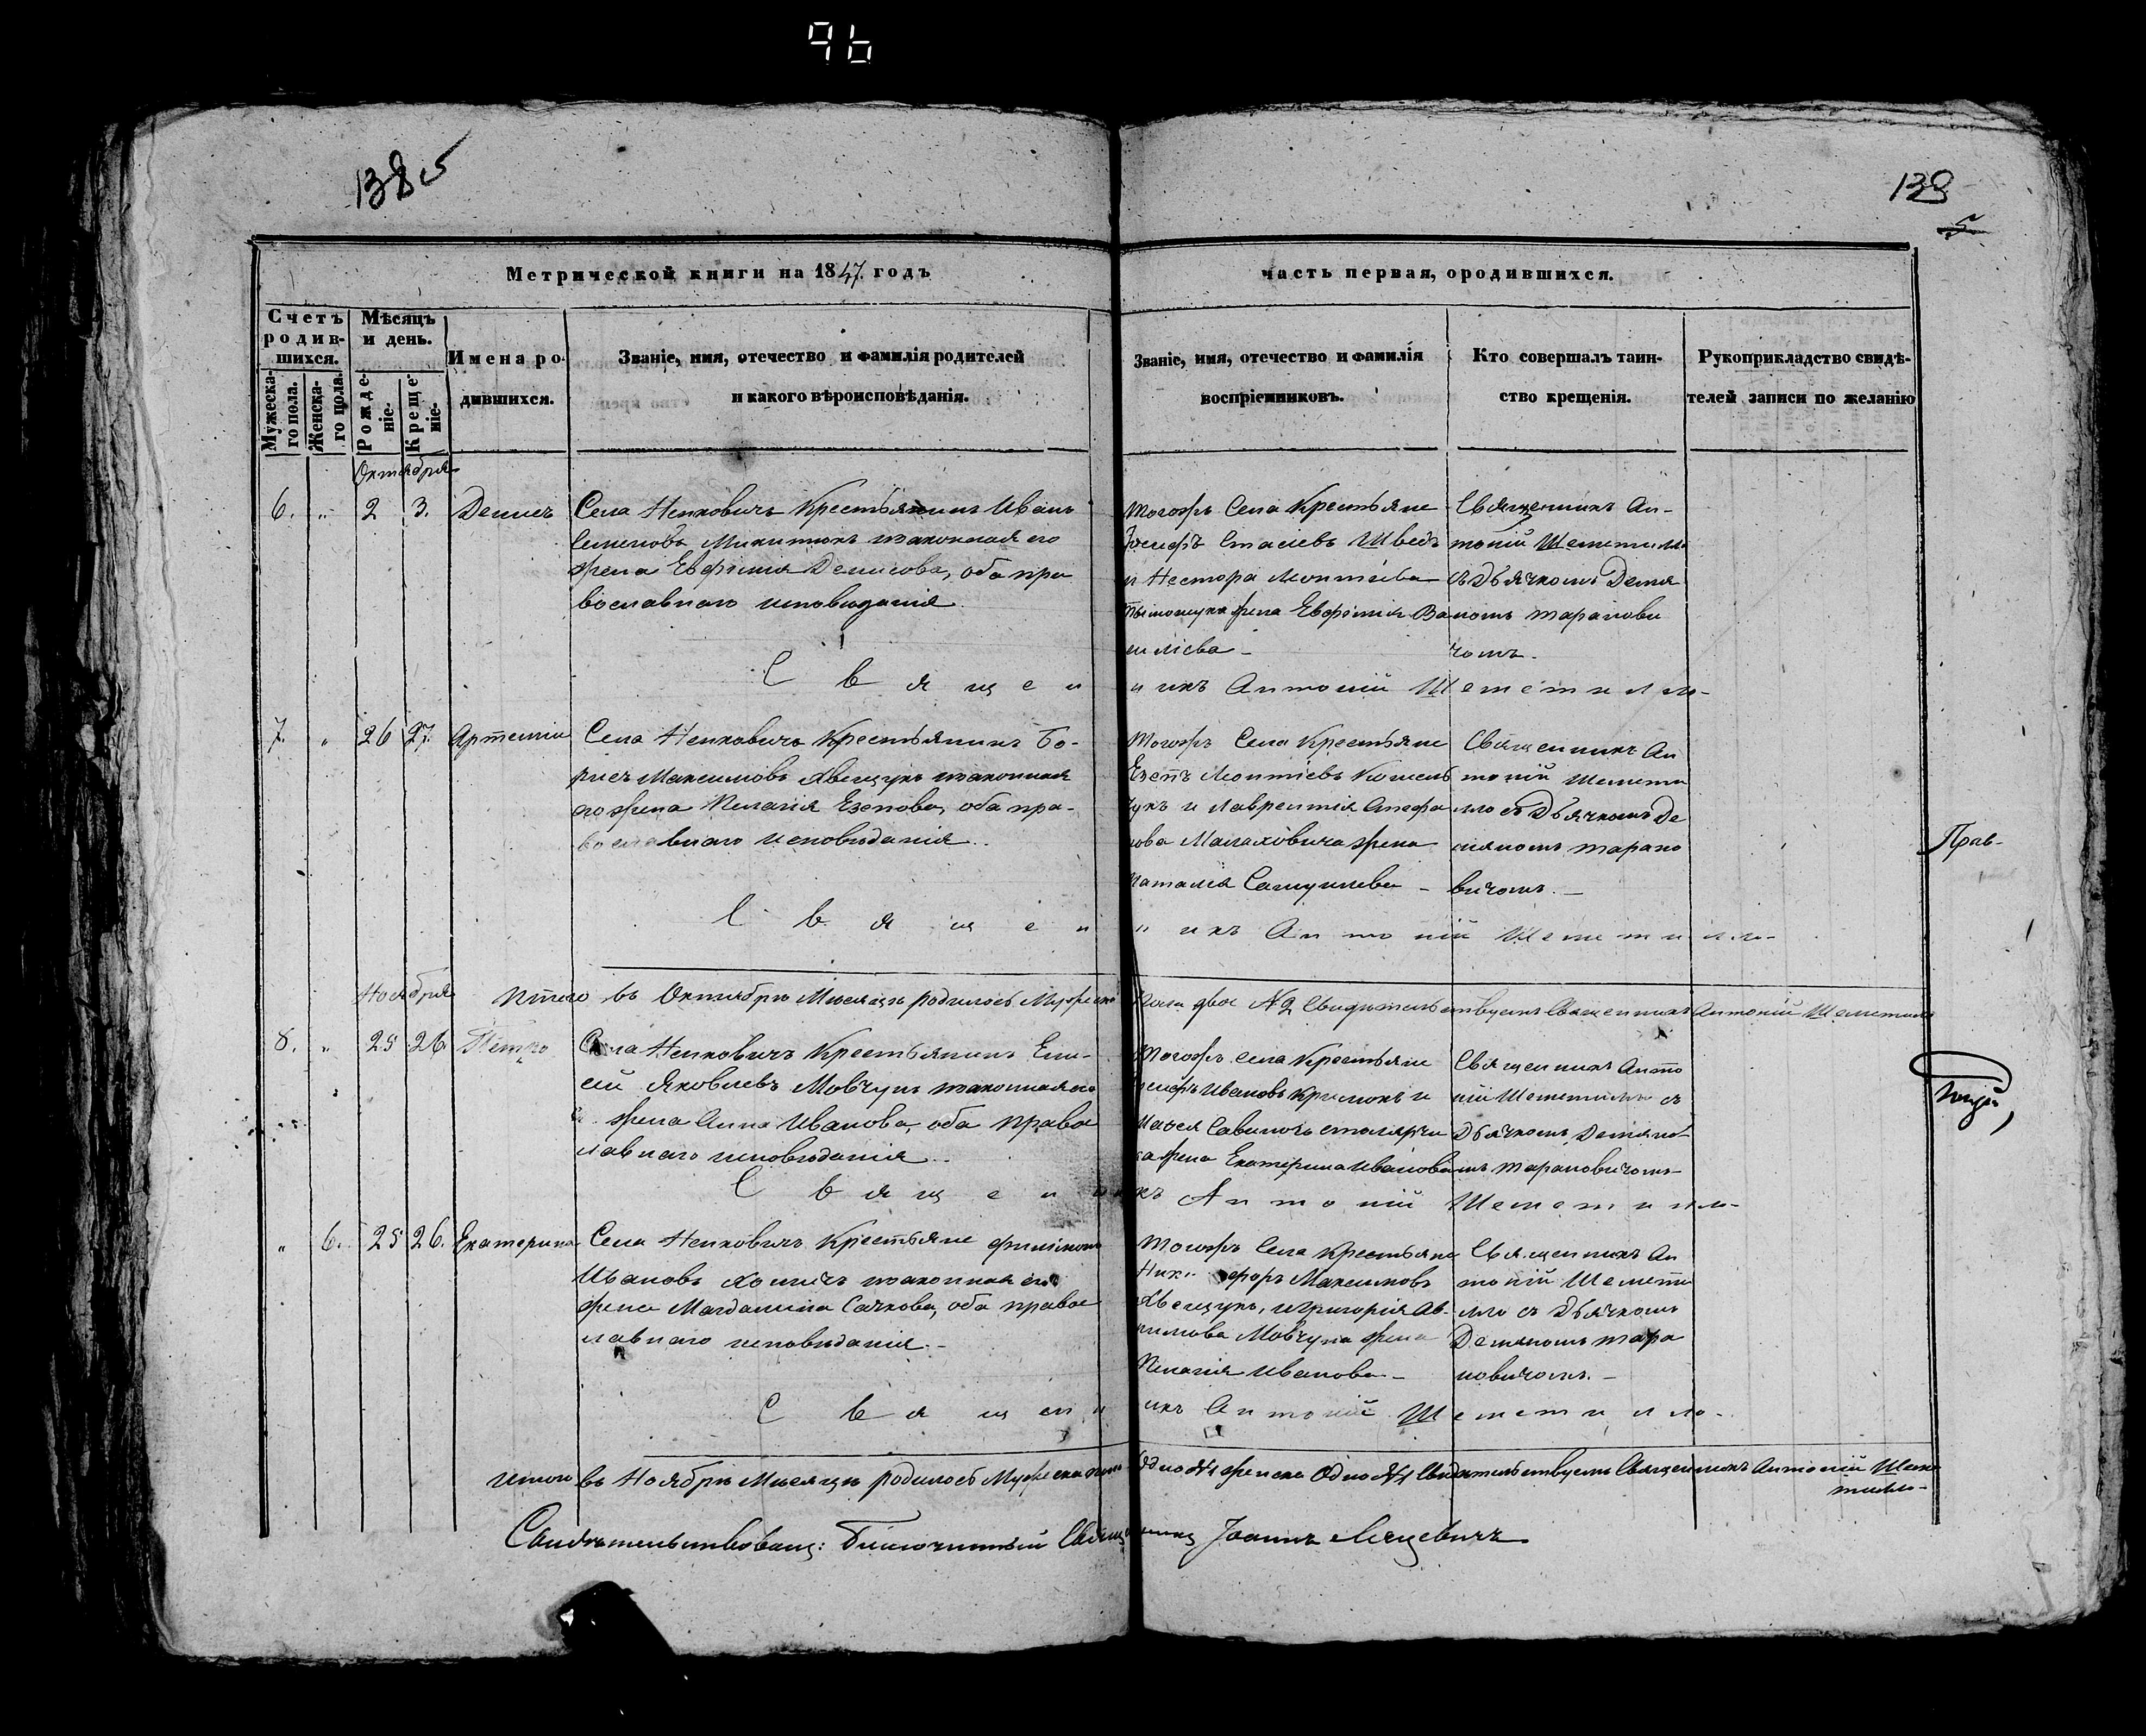 96
138
138
5
Метрической книги на 1847 годъ
часть первая, ородившихся.
Счетъ родив-шихся.
Мѣсяцъ и день.
Имена родившихся.
Званіе, имя, отечество и фамилія родителей
и какого вѣроисповѣданія.
Званіе, имя, отечество и фамилія
воспріемниковъ.
Кто совершалъ таин-
ство крещенія.
Рукоприкладство свидѣ-
телей записи по желанію
Мужеска-го пола.
Женска-го пола.
Рожде-ніе.
Креще-ніе.
Октября
6. " 2 3.
Села Непковичъ Крестьянинъ Иванъ
законная его
жена Евфимія Денисова, оба пра
вославнаго исповѣданія
Тогожъ Села Крестьяне
Шведъ
и Нестора Леонтіева
жена Евфимія Ва
силіева
Священникъ Ан-
тоній Шеметилло
съ Дьячкомъ Демя
номъ Таранови
чомъ.
Священникъ Антоній Шеметилло
7. " 26 27. Артемій
Села Непковичъ Крестьянинъ Бо-
рисъ Максимовъ Хвещукъ законная
его жена Пелагія Езепова, оба пра-
вославнаго исповѣданія.
Тогожъ Села Крестьяне
Езепъ Леонтіевъ
и Лаврентія Стефа
нова Малаховича жена
Наталія Самуилева
Священникъ Ан
тоній Шемети
лло съ Дьячкомъ Де
мяномъ Тарано
вичомъ.
Священникъ Антоній Шеметилло
Прав-
Ноября
Итого въ Октябрѣ Мѣсяцѣ родилось Мужеска Пола двое №2 Свидѣтельствуетъ Священникъ Антоній Шеметилло
8. " 25 26
Села Непковичъ Крестьянинъ Ели-
сей Яковлевъ Мовчунъ законная его
жена Анна Иванова, оба правос
лавнаго исповѣданія.
Тогожъ села Крестьяне
Ивановъ
жена Екатерина Иванова
Священникъ Анто
ній Шеметилло съ
Дьячкомъ Демяно
мъ Тарановичомъ
Священникъ Антоній Шеметилло
" 6. 25 26. Екатерина
Села Непковичъ Крестьяне Филимонъ
Ивановъ Хомичъ законная его
жена Магдалина Сачкова, оба правос
лавнаго исповѣданія.
Тогожъ Села Крестьяне
Никифоръ Максимовъ
Хвещукъ, и Григорія
Мовчуна жена
Пелагія Иванова
Священникъ Ан
тоній Шемети
лло съ Дьячкомъ
Демяномъ Тара
новичомъ.
Священникъ Антоній Шеметилло
Итого въ Ноябрѣ Мѣсяцѣ родилось Мужеска пола Одно №1 женска Одно №1 Свидѣтельствуетъ Священникъ Антоній Шеме
тилло
Свидѣтельствовалъ: Благочинный Священникъ Іоаннъ